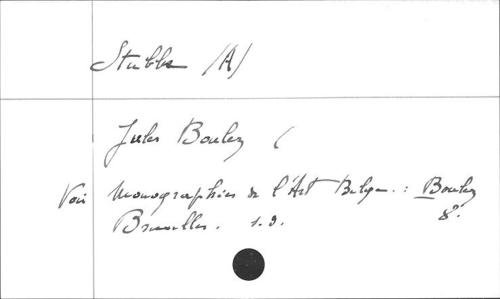 Stubbe (A)
Jules Boulez (
Voir Monographies de l'Art Belge. : Boulez
Bruxelles. s.d. 8°.